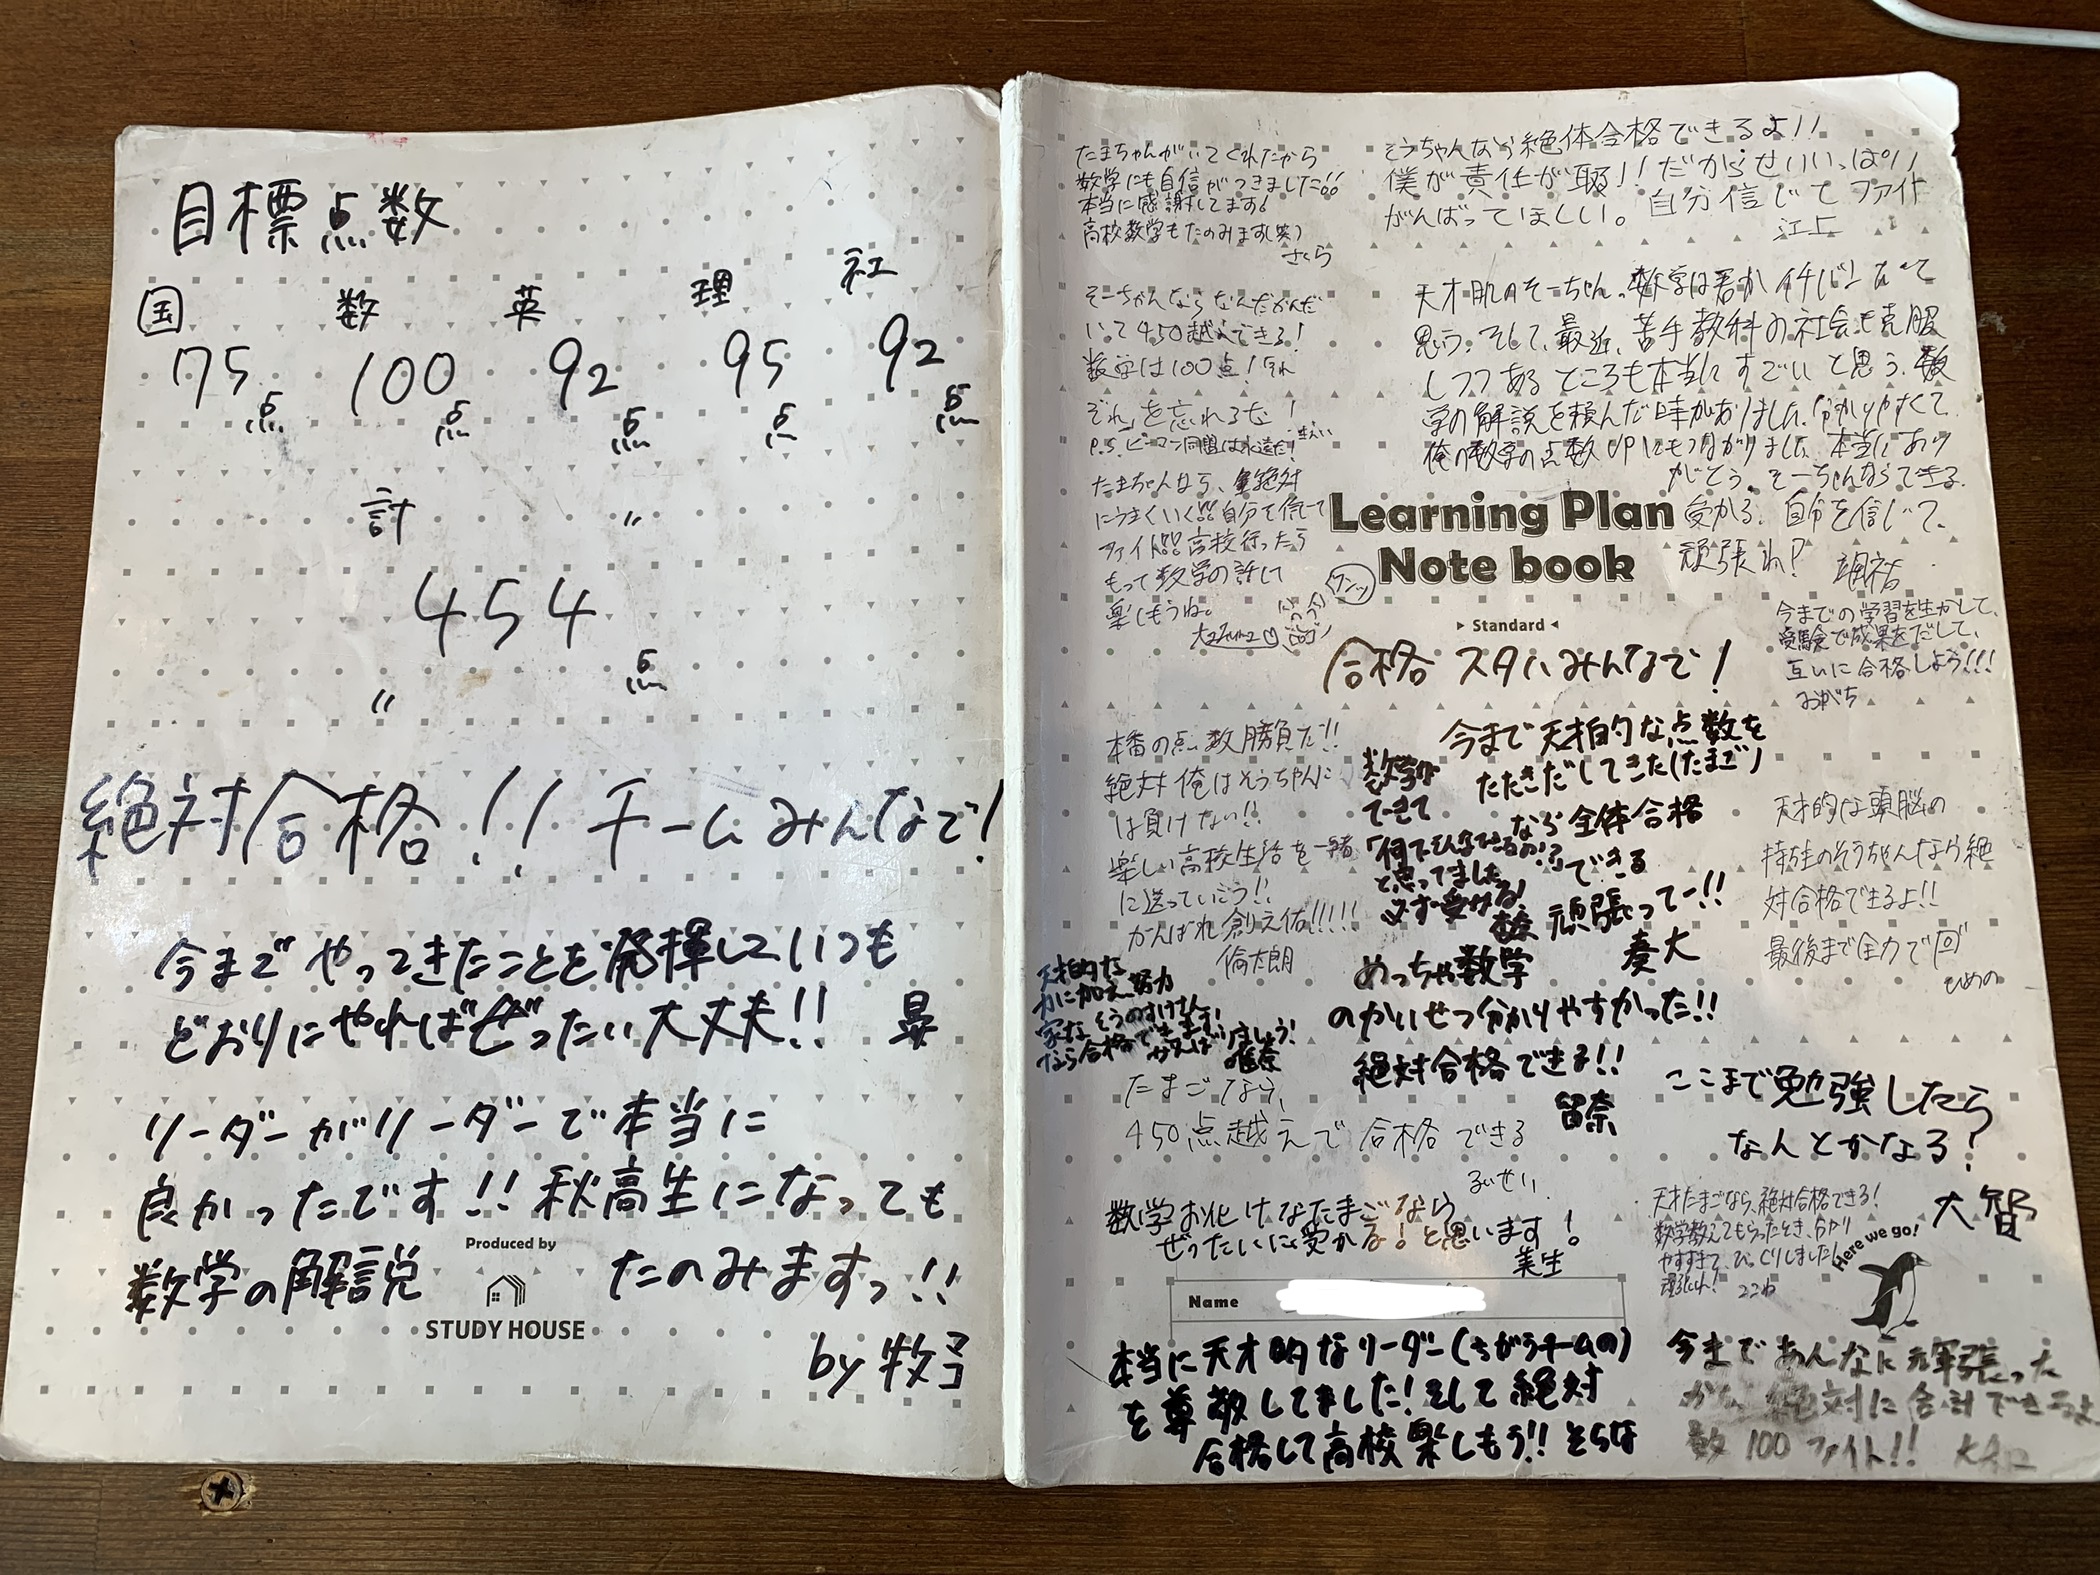 目標点数
国 数 英 理 社
75点 100点 92点 95点 92点
計 〃
454点
〃
絶対合格!! チームみんなで!
今までやってきたことを発揮していつも
どおりにやればぜったい大丈夫!! 昴
リーダーがリーダーで本当に
良かったです!! 秋高生になっても
数学の解説 たのみますっ!!
Produced by
STUDY HOUSE
by 牧子
たまちゃんがいてくれたから
数学にも自信がつきました!!
本当に感謝してます!
高校数学もたのみます(笑)
さくら
そうちゃんなら絶体合格できるよ!!
僕が責任が取る!! だからせいいっぱい
がんばってほしい。自分信じてファイト
江上
そーちゃんならなんだかんだ
いて450越えできる!
数学は100点!
ぞれ」を忘れるな!
P.S. ピーマン同盟は永遠だ!
天才肌のそーちゃん。数学は君がイチバンだって
思う。そして、最近、苦手教科の社会も克服
しつつあるところも本当にすごいと思う。数
学の解説を頼んだ時がありました。分かりやすくて
俺の数学の点数UPにもつながりました。本当にあり
がとう。そーちゃんならできる。
受かる。自分を信じて、
頑張れ!
颯祐
たまちゃんなら、絶対
にうまくいく!!自分を信じて
ファイト!!高校行ったら
もって数学の話して
楽しもうね。
Learning Plan
Note book
Standard
合格 スタハみんなで!
今までの学習を生かして、
受験で成果をだして、
互いに合格しよう!!!
おがち
本番の点数勝負だ!!
絶対俺はそうちゃんに
は負けない!!
楽しい高校生活を一緒
に送っていこう!!
がんばれ創之佑!!!!!
倫太朗
数学が
できて
「何でそんなできるの!?」
と思ってました
必ず受かる!
今まで天才的な点数を
たたきだしてきた(たまご)
なら全体合格
できる
頑張ってー!!
奏大
天才的な頭脳の
持主のそうちゃんなら絶
対合格できるよ!!
最後まで全力で
ひめの
天才的な
力に加え、努力
家な そうのすけさん
なら合格できます!
がんばりましょう!
めっちゃ数学
のかいせつ分かりやすかった!!
絶対合格できる!!
留奈
たまごなら、
450点越えで合格できる
るいせい
ここまで勉強したら
なんとかなる?
大智
数学お化けなたまごなら
ぜったいに受かる!と思います!
美生
天才たまごなら、絶対合格できる!
数学教えてもらったとき、分かり
やすすぎて、びっくりしました!
ここね
Here we go!
Name
本当に天才的なリーダー(ちがうチームの)
を尊敬してました!そして絶対
合格して高校楽しもう!! そらな
今まであんなに頑張った
から 絶対に合計できるよ
数100 ファイト!!